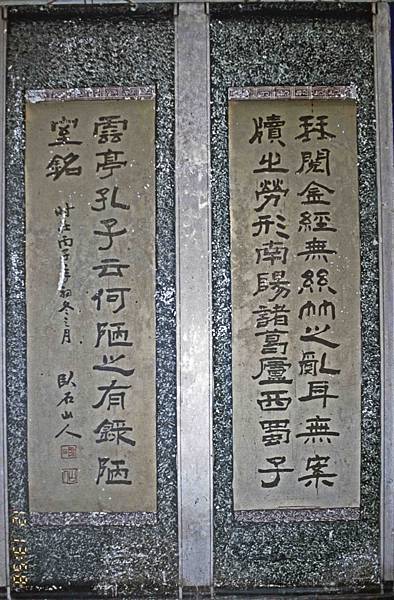 琴閱金經無絲竹之亂耳無案
牘之勞形南陽諸葛廬西蜀子
雲亭孔子云何陋之有錄陋
室銘
時在丙子初冬之月
臥石山人